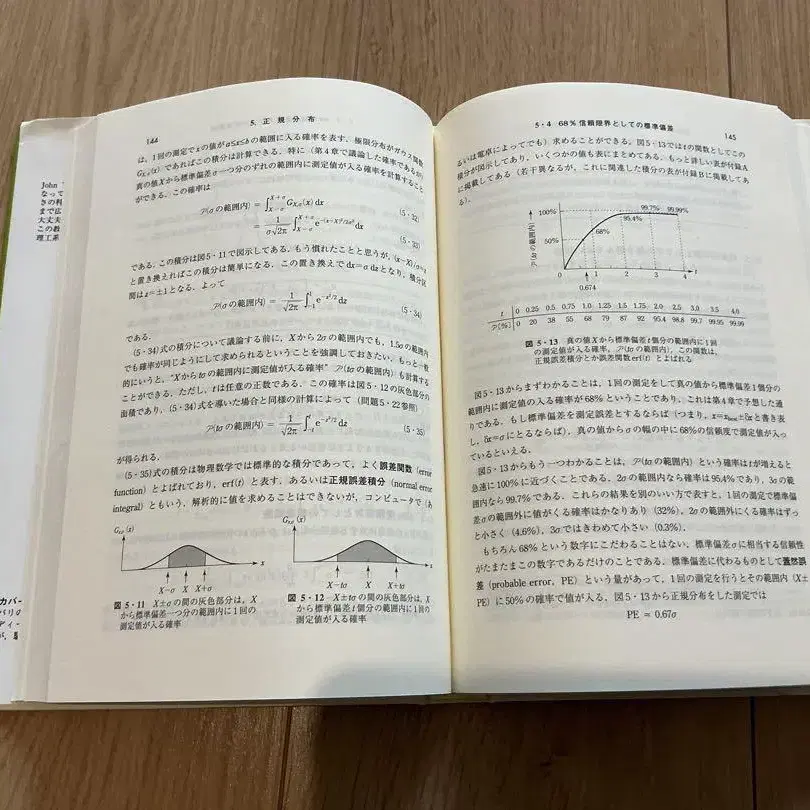 144
5. 正規分布
は, 1回の測定でxの値がa≤x≤bの範囲に入る確率を表す. 極限分布がガウス関数
G_X,σ(x)であればこの積分は計算できる. 特に(第4章で議論した確率であるが)
真の値Xから標準偏差σ一つ分のずれの範囲内に測定値が入る確率を計算すること
ができる. この確率は
𝒫(σの範囲内) = ∫_{X−σ}^{X+σ} G_X,σ(x) dx (5・32)
= 1/(σ√2π) ∫_{X−σ}^{X+σ} e^{−(x−X)²/2σ²} dx (5・33)
である. この積分は図5・11で図示してある. もう慣れたことと思うが, (x−X)/σ=z
と置き換えればこの積分は簡単になる. この置き換えでdx=σ dzとなり, 積分区
間はz=±1となる. よって
𝒫(σの範囲内) = 1/√2π ∫_{−1}^{1} e^{−z²/2} dz (5・34)
である.
(5・34)式の積分について議論する前に, Xから2σの範囲内でも, 1.5σの範囲内
でも確率が同じようにして求められるということを強調しておきたい. もっと一般
的にいうと, “Xからtσの範囲内に測定値が入る確率” 𝒫(tσの範囲内)も計算する
ことができる. ただし, tは任意の正数である. この確率は図5・12の灰色部分の
面積であり, (5・34)式を導いた場合と同様の計算によって(問題5・22参照)
𝒫(tσの範囲内) = 1/√2π ∫_{−t}^{t} e^{−z²/2} dz (5・35)
が得られる.
(5・35)式の積分は物理数学では標準的な積分であって, よく誤差関数(error
function)とよばれており, erf(t)と表す. あるいは正規誤差積分(normal error
integral)ともいう. 解析的に値を求めることはできないが, コンピュータで(あ
G_X,σ(x)
x
X−σ X X+σ
図 5・11 X±σの間の灰色部分は, X
から標準偏差一つ分の範囲内に1回の
測定値が入る確率
G_X,σ(x)
x
X−tσ X X+tσ
図 5・12 X±tσの間の灰色部分は, X
から標準偏差t個分の範囲内に1回の
測定値が入る確率
5・4 68%信頼限界としての標準偏差
145
るいは電卓によってでも)求めることができる. 図5・13ではtの関数としてこの
積分が図示してあり, いくつかの値も表にまとめてある. もっと詳しい表が付録A
に掲載してある(若干異なるが, これに関連した積分の表が付録Bに掲載してあ
る).
𝒫(tσの範囲内)
100%
50%
68%
95.4%
99.7%
99.99%
0 1 2 3 4 t
0.674
t 0 0.25 0.5 0.75 1.0 1.25 1.5 1.75 2.0 2.5 3.0 3.5 4.0
𝒫(%) 0 20 38 55 68 79 87 92 95.4 98.8 99.7 99.95 99.99
図 5・13 真の値Xから標準偏差t個分の範囲内に1回
の測定値が入る確率, 𝒫(tσの範囲内). この関数は,
正規誤差積分とか誤差関数 erf(t) とよばれる
図5・13からまずわかることは, 1回の測定をして真の値から標準偏差1個分の
範囲内に測定値の入る確率が68%ということであり, これは第4章で予想した通
りである. もし標準偏差を測定誤差とするならば(つまり, x=x_best±δxと書き表
し, δx=σにとるならば), 真の値からσの幅の中に68%の信頼度で測定値が入っ
ているといえる.
図5・13からもう一つわかることは, 𝒫(tσの範囲内)という確率はtが増えると
急速に100%に近づくことである. 2σの範囲内なら確率は95.4%であり, 3σの範
囲内なら99.7%である. これらの結果を別のいい方で表すと, 1回の測定で標準偏
差σの範囲外に値がくる確率はかなりあり(32%), 2σの範囲外にくる確率はずっ
と小さく(4.6%), 3σではきわめて小さい(0.3%).
もちろん68%という数字にこだわることはない. 標準偏差σに相当する信頼性
がたまたまこの数字であるだけのことである. 標準偏差に代わるものとして蓋然誤
差(probable error, PE)という量があって, 1回の測定を行うとその範囲内(X±
PE)に50%の確率で値が入る. 図5・13から正規分布をした測定では
PE ≈ 0.67σ
John
なって
さの利
まで広
大丈夫
この教
理工系
カバー
バリの
ディー